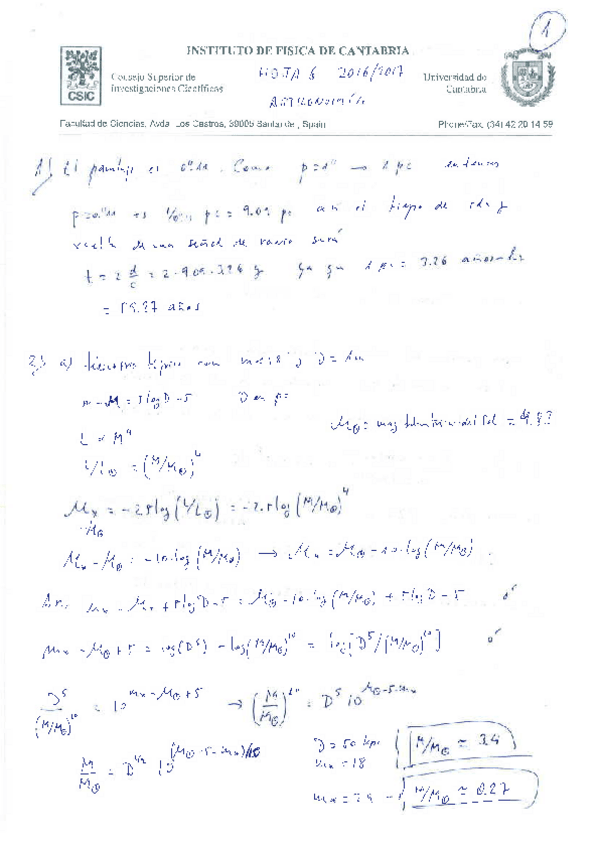 1
INSTITUTO DE FISICA DE CANTABRIA
CSIC
Consejo Superior de
Investigaciones Científicas
HOJA 6 2016/2017
ASTRONOMÍA
Universidad de
Cantabria
Facultad de Ciencias, Avda. Los Castros, 39005 Santander, Spain
Phone/Fax. (34) 42 20 14 59
1) El paralaje es 0"11. Como p=1" → 1 pc entonces
p=0"11 pc = 9.09 pc así el tiempo de ida y
vuelta de una señal de radio será
t = 2 d/c = 2·9.09·3.26 y ya que 1 pc = 3.26 años-luz
= 59.27 años
2) a) tenemos con m=18 y
m-M = 5 log D - 5 D en pc
M⊙ = mag del Sol = 4.83
L ∝ M^4
L/L⊙ = (M/M⊙)^4
Mx - M⊙ = -2.5 log (L/L⊙) = -2.5 log (M/M⊙)^4
Mx - M⊙ = -10·log (M/M⊙) → Mx = M⊙ - 10·log (M/M⊙)
mx = M⊙ - 10·log (M/M⊙) + 5 log D - 5
mx - M⊙ + 5 = log(D^5) - log(M/M⊙)^10 = log[D^5/(M/M⊙)^10]
D^5/(M/M⊙)^10 = 10^(mx-M⊙+5) → (M/M⊙)^10 = D^5 10^(M⊙-5-mx)
M/M⊙ = D^1/2 10^(M⊙-5-mx)/10
D = 50 kpc
mx = 18
M/M⊙ ≃ 3.4
M/M⊙ ≃ 0.27